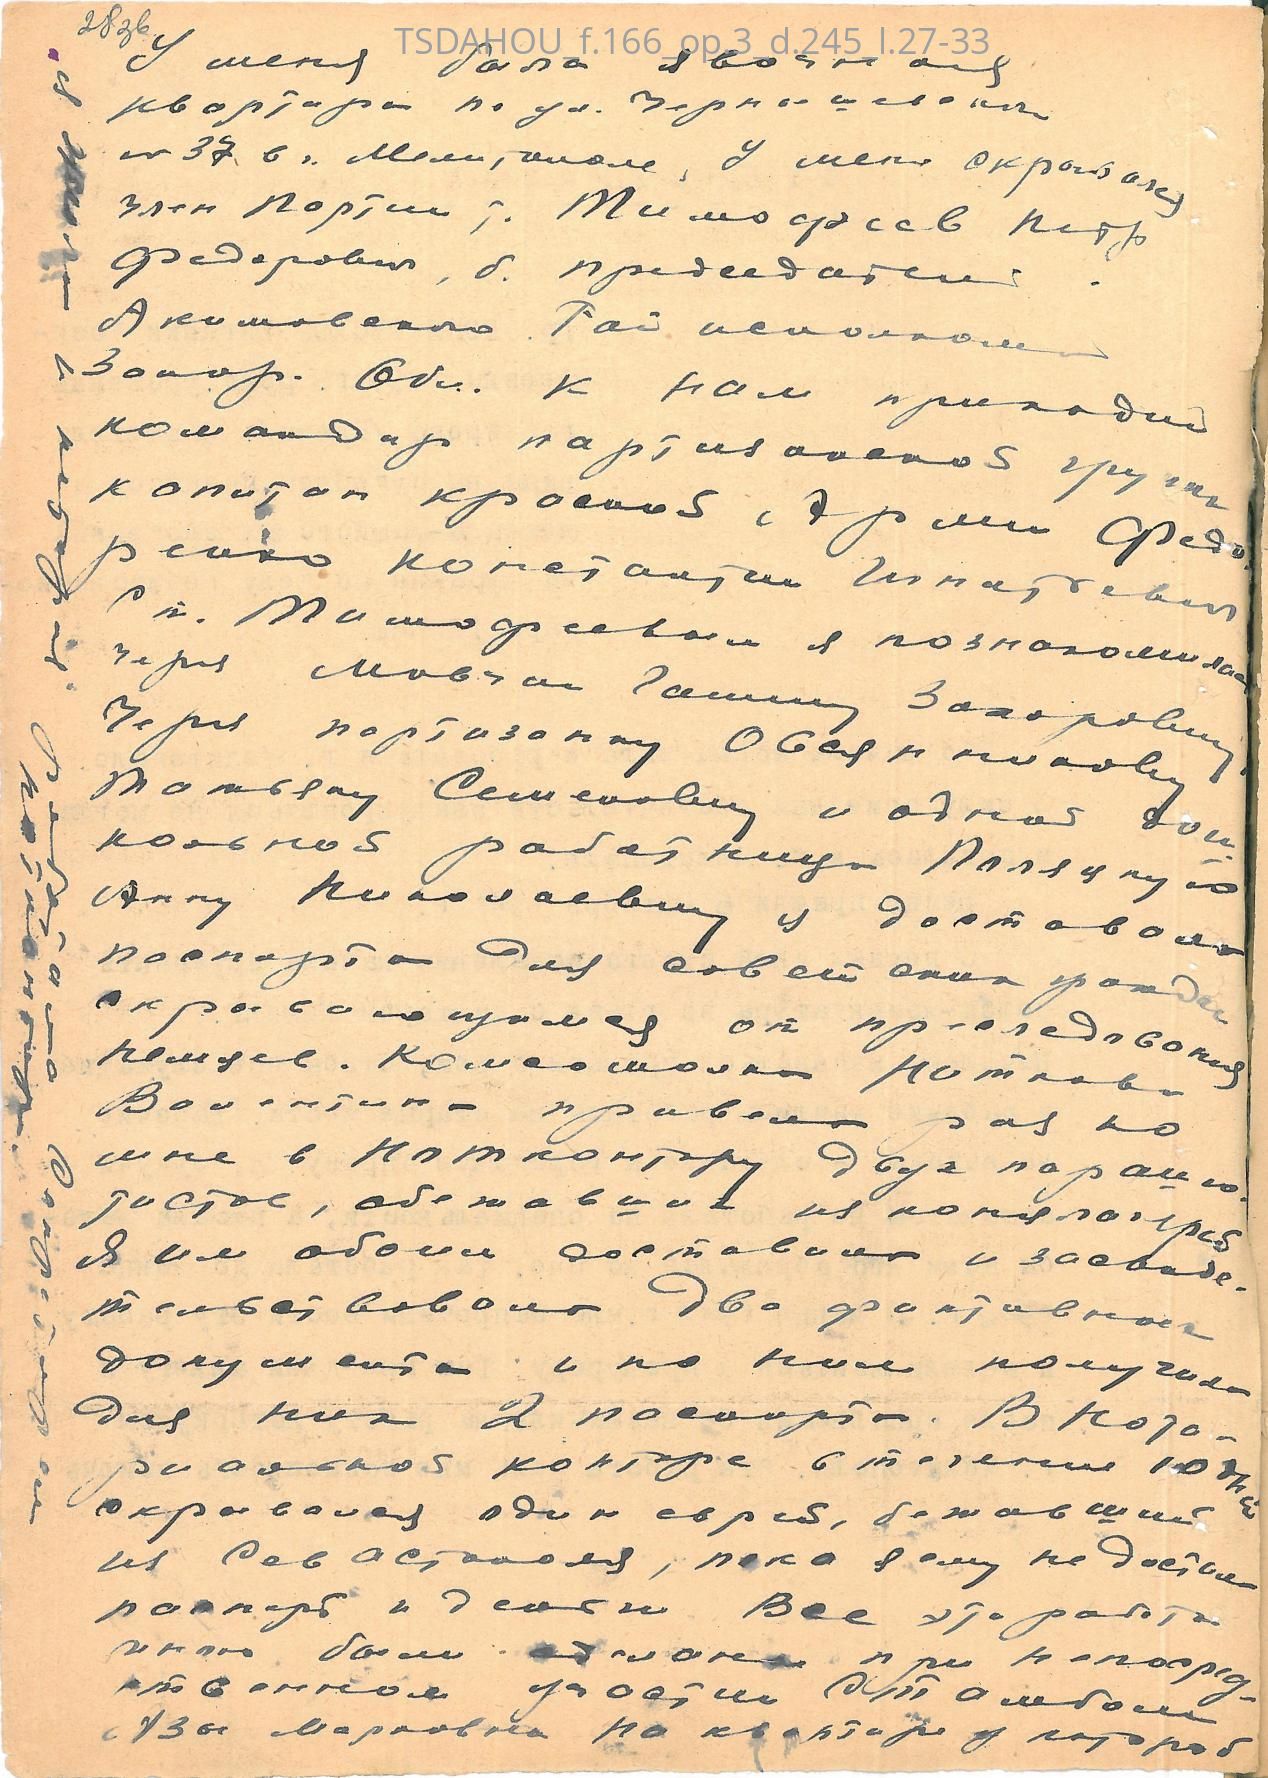 28 зв
TSDAHOU_f.166_op.3_d.245_l.27-33
У меня была явочная
квартира по ул. Чернышевского
№ 37 в г. Мелитополе, У меня скрывался
член партии т. Тимофеев Петр
Федорович, б. председатель
Акимовского Рай исполкома
Запор. Обл. К нам приходил
командир партизанской группы
капитан красной Армии Федо-
ренко Константин Игнатьевич
С т. Тимофеевым я познакомилась
через Мовчан Галину Захаровну,
Через партизанку Овсянникову
Татьяну Семеновну и одной
работницы
Анну Николаевну я доставала
паспорта для советских граждан
скрывающимся от преследования
немцев. Комсомолка
Валентина привела раз ко
мне в Нотконтору двух парашю-
тистов, бежавших из концлагерей
Я им обоим доставила и засвиде-
тельствовала два фиктивных
документа и по ним получила
для них 2 паспорта. В Нота-
риальной конторе в течение 10 дней
скрывался один еврей, бежавший
из Севастополя, пока я ему не достала
паспорт и деньги Все эта работа
мною были сделаны при непосред-
ственном участии Штамбом
Азы Марковны на квартире у которой
я жила и которая
работала